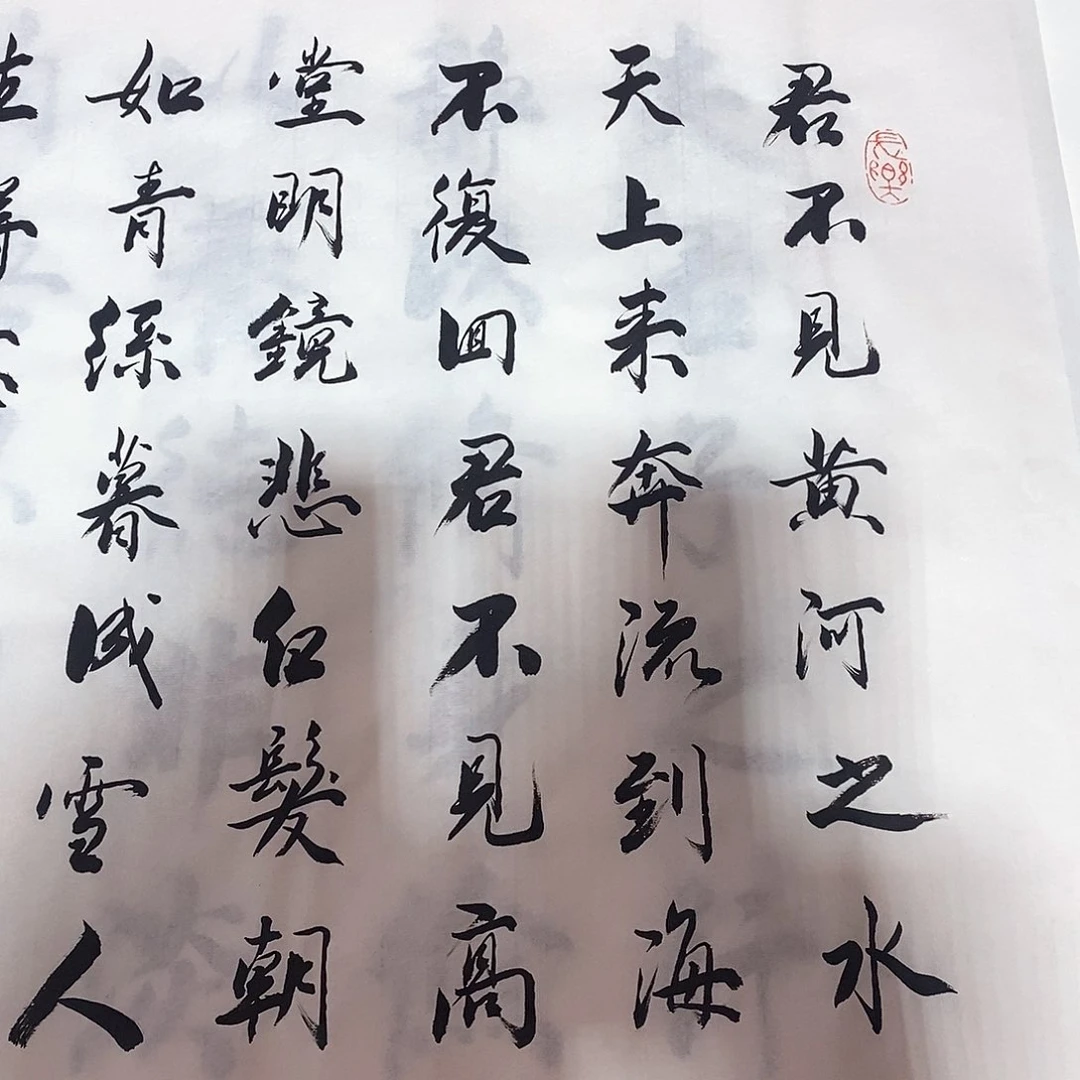 君不見黄河之水
天上来奔流到海
不復回君不見高
堂明鏡悲白髮朝
如青絲暮成雪人
長樂